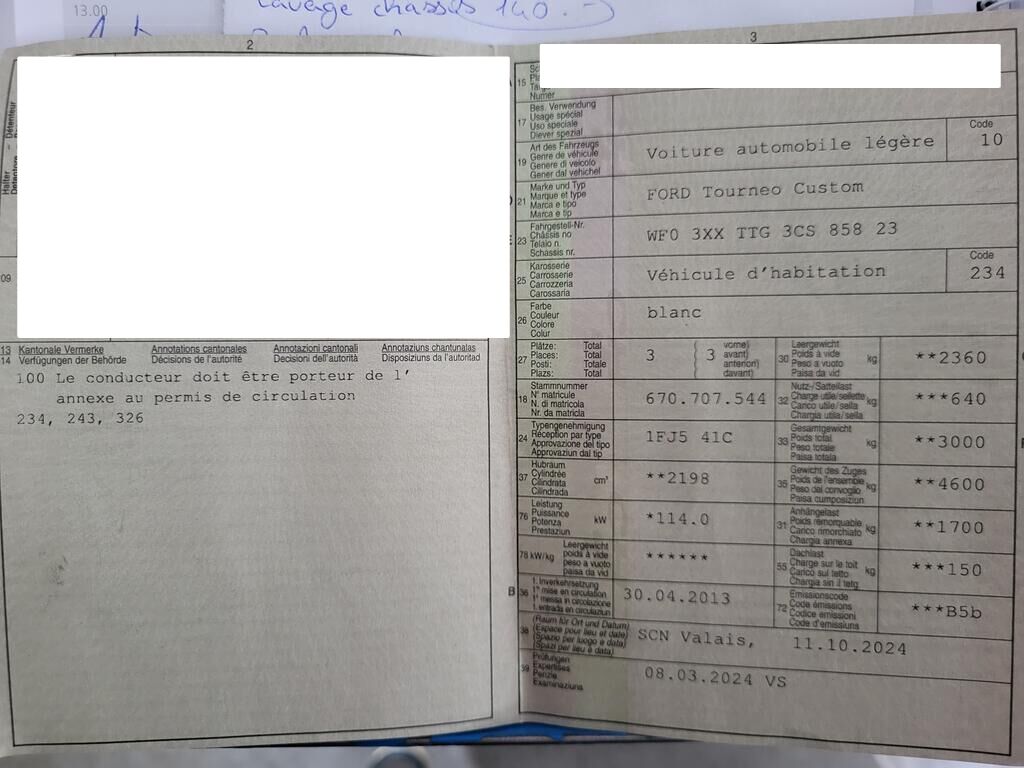 13.00
Lavage chassis 140.-
2
Halter - Détenteur
09
13 Kantonale Vermerke Annotations cantonales Annotazioni cantonali Annotaziuns chantunalas
14 Verfügungen der Behörde Décisions de l'autorité Decisioni dell'autorità Disposiziuns da l'autoritad
100 Le conducteur doit être porteur de l'
annexe au permis de circulation
234, 243, 326
3
15
Numer
17 Bes. Verwendung
Usage spécial
Uso speciale
Diever spezial
19 Art des Fahrzeugs
Genre de véhicule
Genere di veicolo
Gener dal vehichel
Voiture automobile légère
Code
10
21 Marke und Typ
Marque et type
Marca e tipo
Marca e tip
FORD Tourneo Custom
23 Fahrgestell-Nr.
Châssis no
Telaio n.
Schassis nr.
WF0 3XX TTG 3CS 858 23
25 Karosserie
Carrosserie
Carrozzeria
Carossaria
Véhicule d'habitation
Code
234
26 Farbe
Couleur
Colore
Colur
blanc
27 Plätze: Total
Places: Total
Posti: Totale
Plazs: Total
3
( vorne)
( 3 avant)
( anterion)
( davant)
30 Leergewicht
Poids à vide
Peso a vuoto
Paisa da vid
kg
**2360
18 Stammnummer
N° matricule
N. di matricola
Nr. da matricla
670.707.544
32 Nutz-/Sattellast
Charge utile/sellette
Carico utile/sella
Chargia utila/sella
kg
***640
24 Typengenehmigung
Réception par type
Approvazione del tipo
Approvaziun dal tip
1FJ5 41C
33 Gesamtgewicht
Poids total
Peso totale
Paisa totala
kg
**3000
37 Hubraum
Cylindrée
Cilindrata
Cilindrada
cm³
**2198
35 Gewicht des Zuges
Poids de l'ensemble
Peso del convoglio
Paisa cumposiziun
kg
**4600
76 Leistung
Puissance
Potenza
Prestaziun
kW
*114.0
31 Anhängelast
Poids remorquable
Carico rimorchiato
Chargia annexa
kg
**1700
78 kW/kg Leergewicht
poids à vide
peso a vuoto
paisa da vid
******
55 Dachlast
Charge sur le toit
Carico sul tetto
Chargia sin il tetg
kg
***150
B 36 1. Inverkehrsetzung
1re mise en circulation
1a messa in circolazione
1. entrada en circulaziun
30.04.2013
72 Emissionscode
Code émissions
Codice emissioni
Code d'emissiuns
***B5b
38 (Raum für Ort und Datum)
(Espace pour lieu et date)
(Spazio per luogo e data)
(Spazi per lieu e data)
SCN Valais, 11.10.2024
39 Prüfungen
Expertises
Perizie
Examinaziuns
08.03.2024 VS